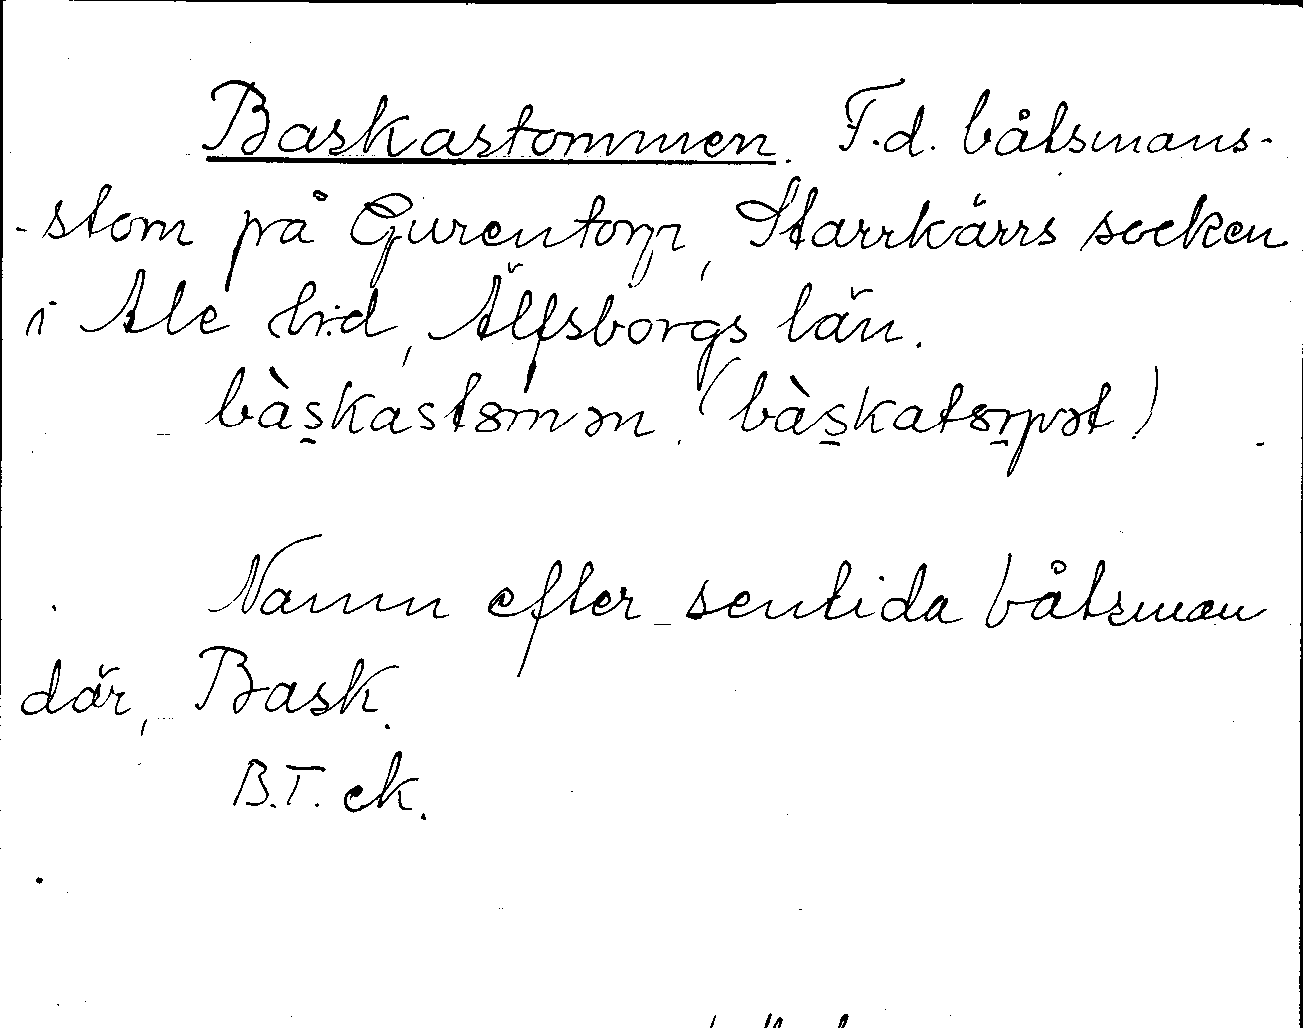 Baskastommen. F.d. båtsmans-
-stom på Gurentorp, Starrkärrs socken
i Ale hrd, Älfsborgs län.
bàs̱kastɞmən. (bàs̱katɞṟpət)
Namn efter sentida båtsman
där, Bask.
B.T. ek.